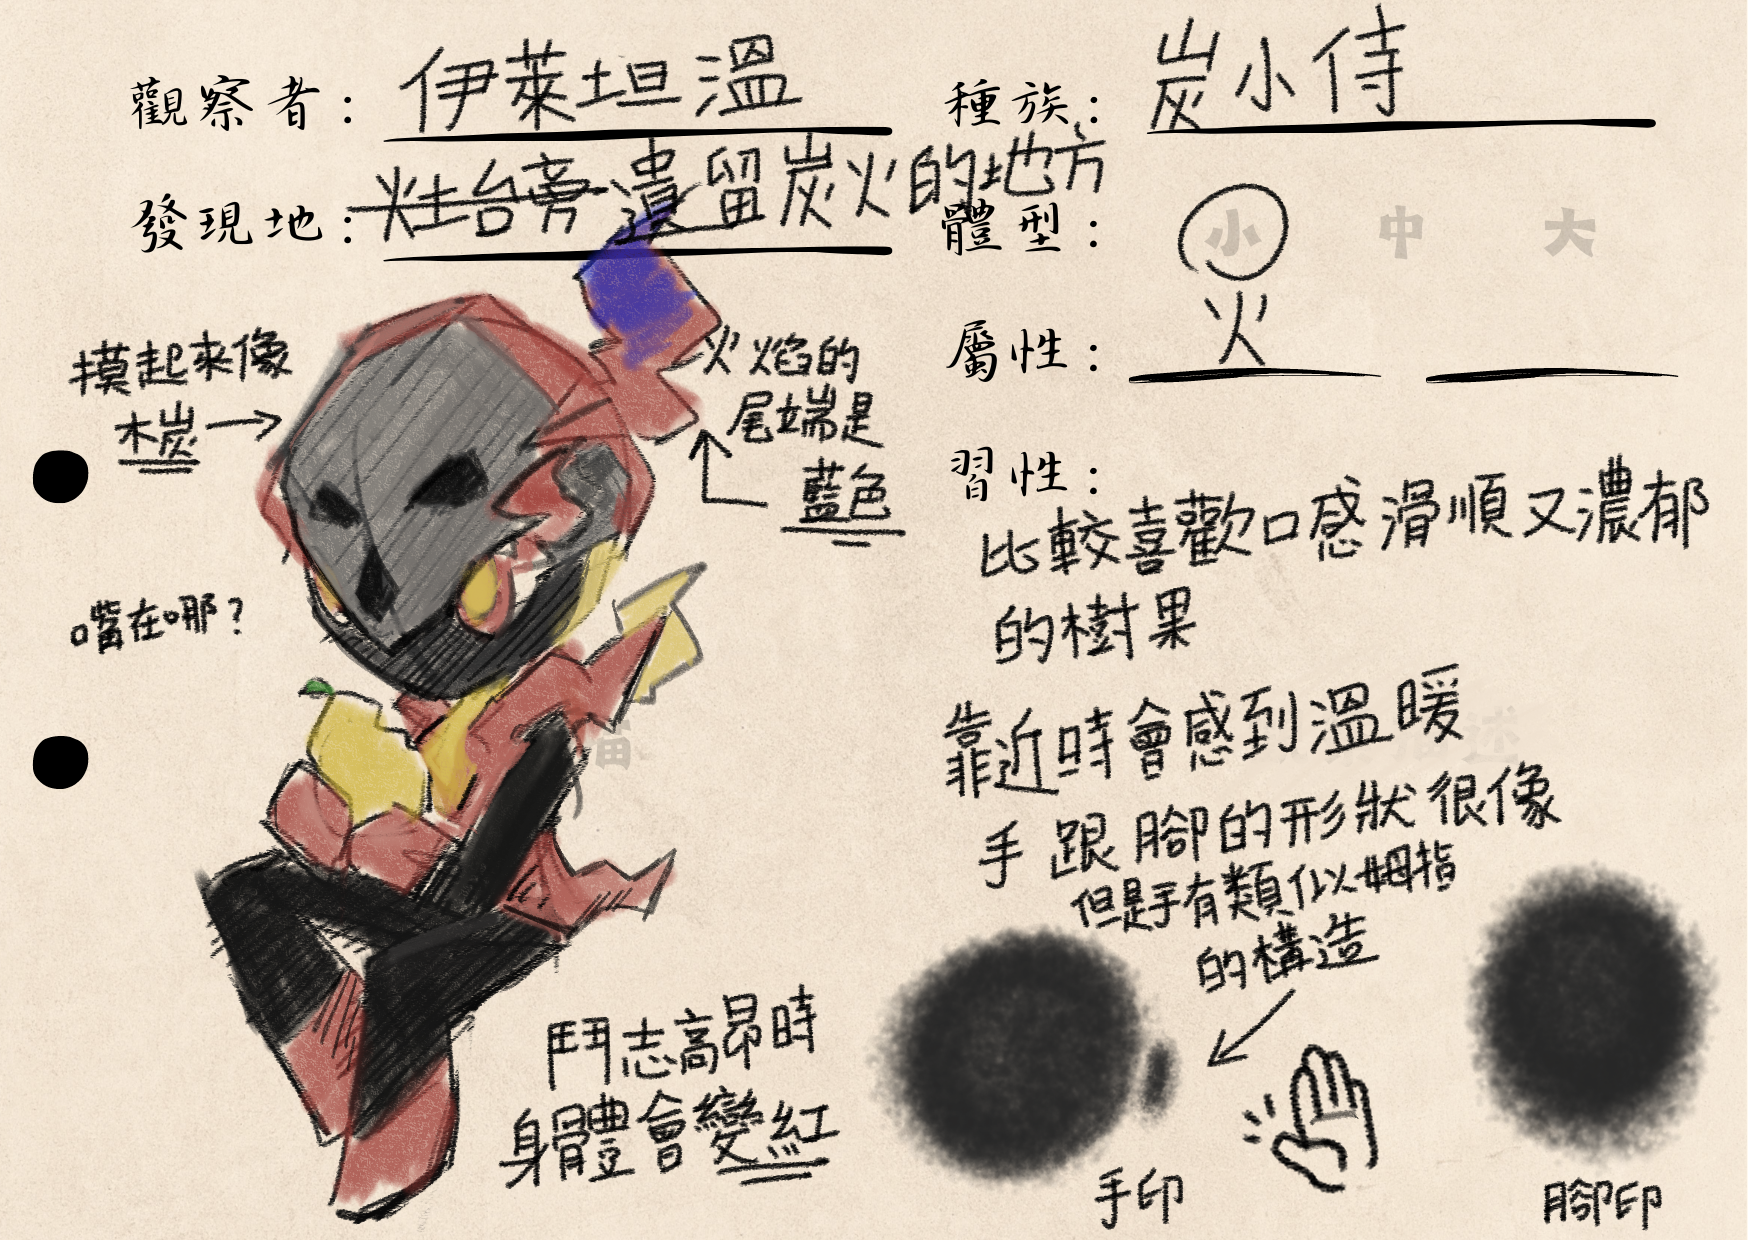 觀察者： 伊萊坦溫
種族： 炭小侍
發現地： 灶台旁遺留炭火的地方
體型： 小 中 大
屬性： 火
摸起來像
木炭
火焰的
尾端是
藍色
嘴在哪？
習性：
比較喜歡口感滑順又濃郁
的樹果
靠近時會感到溫暖
手跟腳的形狀很像
但是手有類似姆指
的構造
鬥志高昂時
身體會變紅
手印
腳印